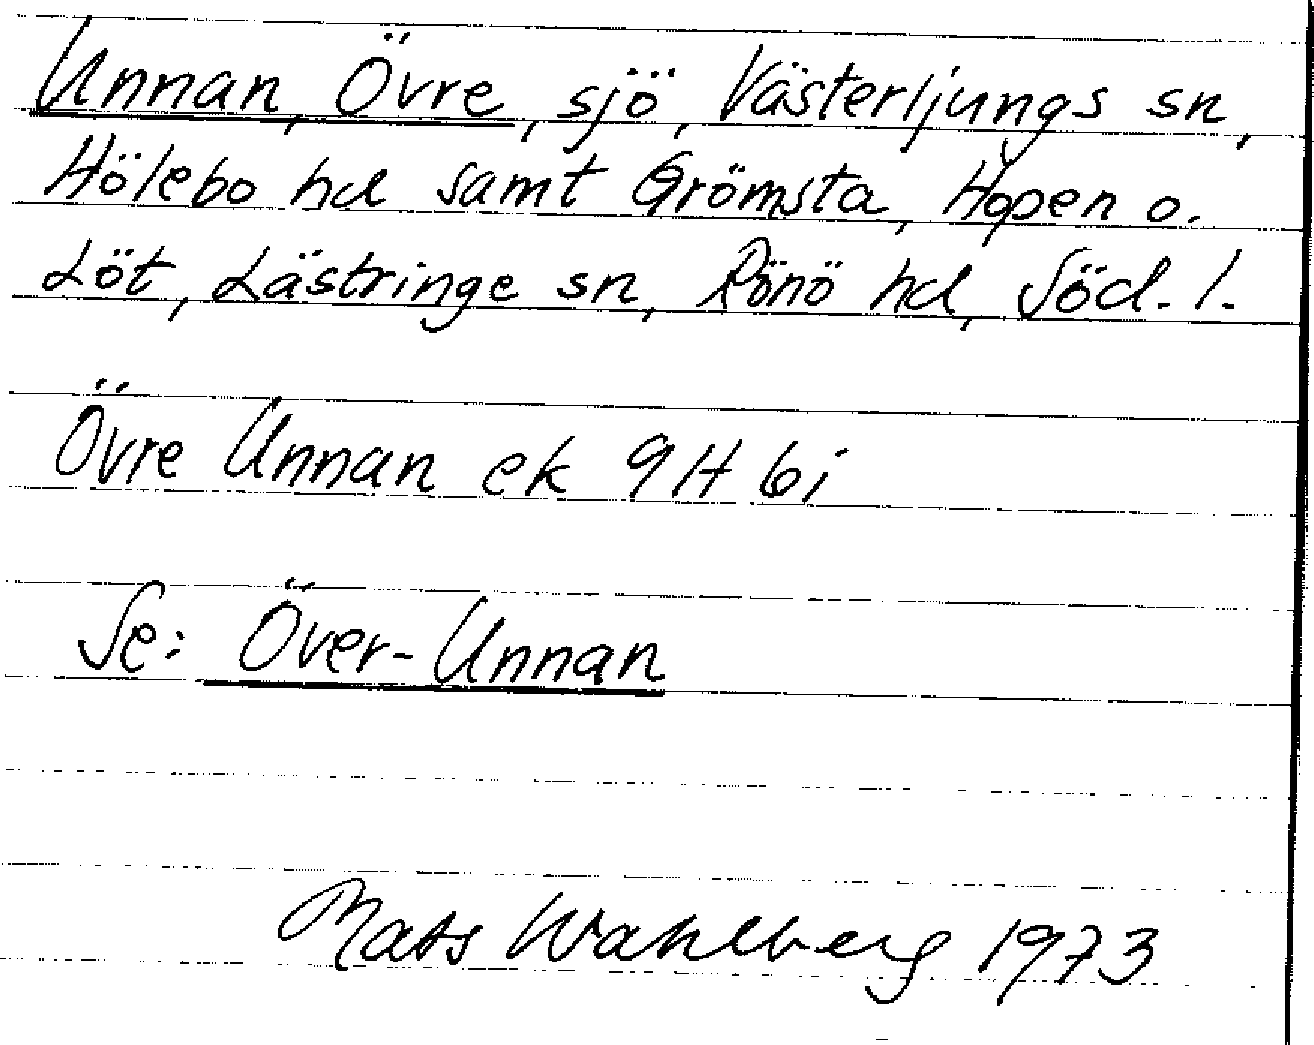 Unnan, Övre, sjö, Västerljungs sn,
Hölebo hd samt Grömsta, Hopen o.
Löt, Lästringe sn, Rönö hd, Söd. l.
Övre Unnan ek 9H 6i
Se: Över-Unnan
Mats Wahlberg 1973